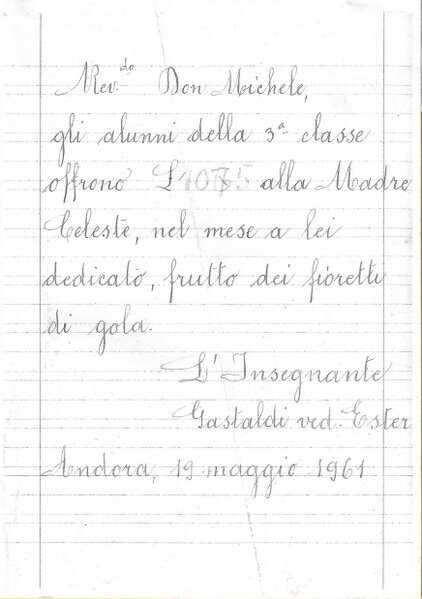 Rev.do Don Michele,
gli alunni della 3ª classe
offrono L alla Madre
Celeste, nel mese a lei
dedicato, frutto dei fioretti
di gola.
L'Insegnante
Gastaldi ved. Ester
Andora, 19 maggio 1961